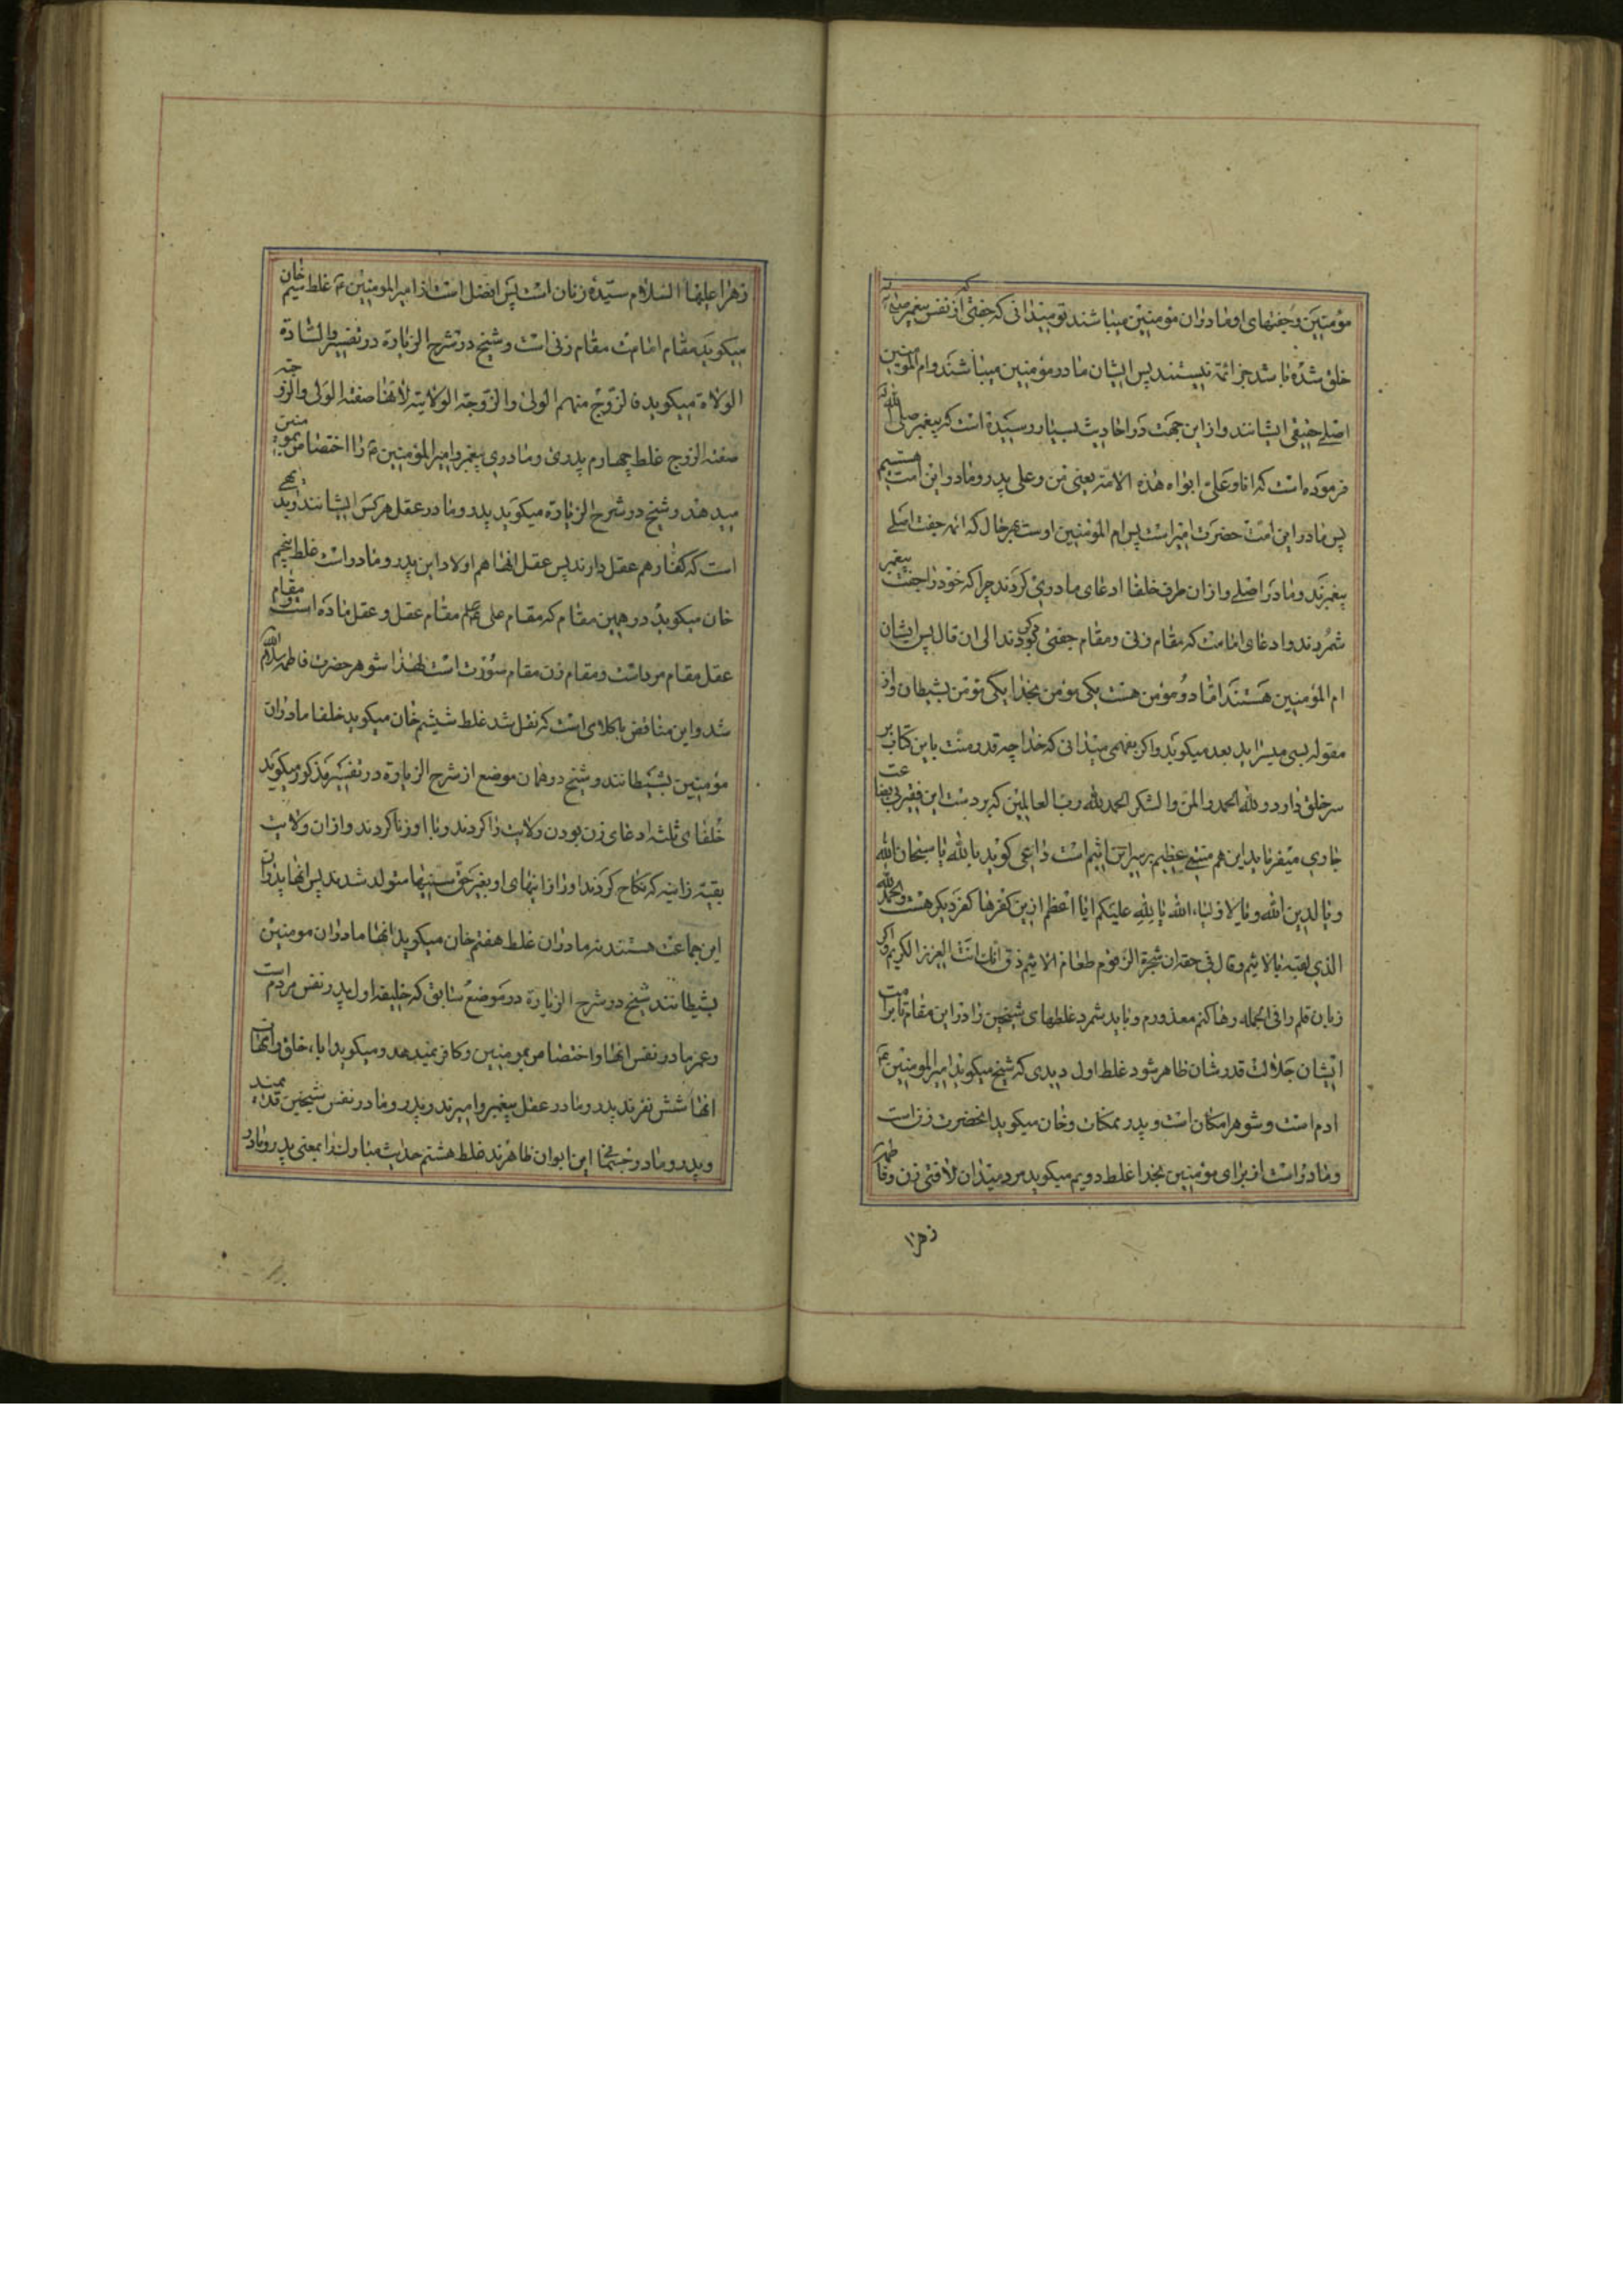 مؤمنین و جفتهای او مادران مؤمنین میباشند تو میدانی که جفتی که از نفس پیغمبر
خلق شده باشد جز ائمه نیستند پس ایشان مادر مؤمنین میباشند و ام المؤمنین
اصلی حقیقی ایشانند و از این جهت در احادیث بسیار رسیده است که پیغمبر صلی الله
فرموده است که انا و علی ابواه هذه الامة یعنی من و علی پدر و مادر این امت هستیم
پس مادر این امت حضرت امیر است پس ام المؤمنین اوست بهر حال که ائمه جفت اصلی
پیغمبرند و مادر اصلی و از ان طرف خلفا ادعای مادری کردند چرا که خود را جفت پیغمبر
شمردند و ادعای امامت که مقام زنی و مقام جفتی بود کردند الی ان قال پس ایشان
ام المؤمنین هستند اما دو مؤمن هست یکی مؤمن بخدا یکی مؤمن بشیطان و از
مقوله بسی میسراید بعد میکوید و اکر بفهمی میدانی که خدا چه قدر منت باین کتاب بر
سر خلق دارد و لله الحمد و المن و الشکر الحمد لله رب العالمین که بر دست این فقیر بی بضاعت
جاری میفرماید این هم متنبی عظیم بر سراین اثیم است داعی کوید یا لله یا سبحان الله
و یا لدین الله و یا لاولیاء الله یا لله علیکم ایا اعظم ازین کفرها کفر دیکر هست و الحمد لله
الذی لقبه بالاثیم و قال فی حقه ان شجرة الزقوم طعام الاثیم ذق انک انت العزیز الکریم و اکر
زبان قلم را فی الجمله رها کنم معذورم و باید شمرد غلطهای شیخین را در این مقام تا برامت
ایشان جلالت قدرشان ظاهر شود غلط اول دیدی که شیخ میکوید امیر المومنین ع
ادم است و شوهر امکان است و پدر ممکنات و خان میکوید انحضرت زن است
و مادر است از برای مؤمنین بخدا غلط دویم میکوید مرد میدان لافتی زن و فاطمه
زهرا
زهرا علیها السلام سیده زنان است پس افضل است از امیر المومنین ع غلط سیم خان
میکوید مقام امامت مقام زنی است و شیخ در شرح الزیارة در تفسیر و السادة
الولاة میکوید فالزوج منهم الولی و الزوجة الولایة لانها صفة الولی و الزوجة
صفة الزوج غلط چهارم پدری و مادری پیغمبر و امیر المؤمنین ع را اختصاص بمومنین
میدهد و شیخ در شرح الزیارة میکوید پدر و مادر عقل هر کس ایشانند و بدیهی
است که کفار هم عقل دارند پس عقل انها هم اولاد این پدر و مادر است غلط پنجم
خان میکوید در همین مقام که مقام علی ع مقام عقل و عقل ماده است و مقام
عقل مقام مرد است و مقام زن مقام صورت است لهذا شوهر حضرت فاطمه سلام الله
شد و این مناقض با کلامی است که نقل شد غلط ششم خان میکوید خلفا مادران
مؤمنین بشیطانند و شیخ در همان موضع از شرح الزیارة در تفسیر مذکور میکوید
خلفای ثلثه ادعای زن بودن ولایت را کردند و با او زنا کردند و از ان ولایت
بقیة زانیه که نکاح کردند او را زانیهای او بغیر حق سنیها متولد شدند پس انها پدران
این جماعت هستند نه مادران غلط هفتم خان میکوید انها مادران مومنین
بشیطانند شیخ در شرح الزیارة در موضع سابق که خلیفه اول پدر نفس مردم است
و عمر مادر نفس انها و اختصاص بمومنین و کافر نمیدهد و میکوید اباء خلق و امهات
انها شش نفرند پدر و مادر عقل پیغمبر و امیرند و پدر و مادر نفس شیخین
و پدر و مادر جسمها این ابوان ظاهرند غلط هشتم حدیث مبارک را بمعنی پدر و مادر